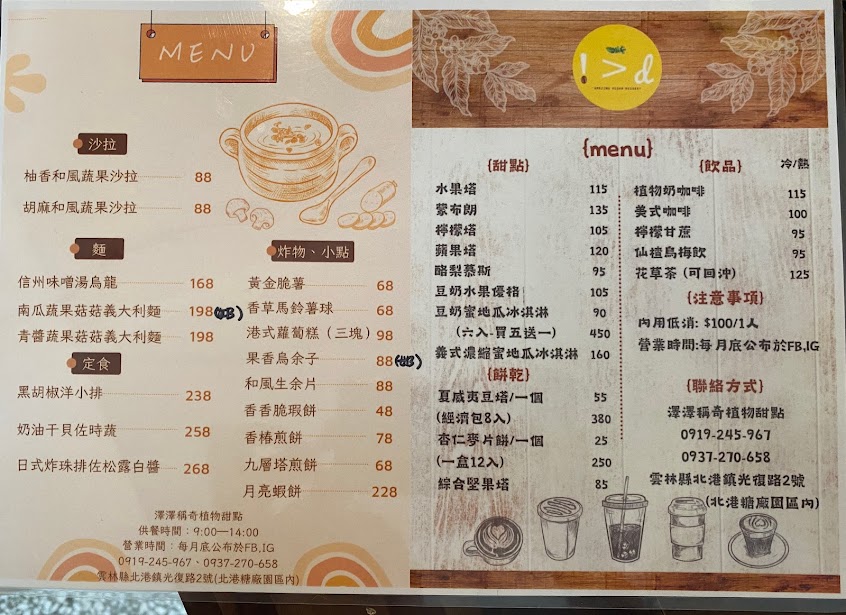 MENU
沙拉
柚香和風蔬果沙拉 88
胡麻和風蔬果沙拉 88
麵
信州味噌湯烏龍 168
南瓜蔬果菇菇義大利麵 198
青醬蔬果菇菇義大利麵 198
定食
黑胡椒洋小排 238
奶油干貝佐時蔬 258
日式炸珠排佐松露白醬 268
炸物、小點
黃金脆薯 68
香草馬鈴薯球 68
港式蘿蔔糕（三塊） 98
果香烏余子 88
和風生余片 88
香香脆瑕餅 48
香椿煎餅 78
九層塔煎餅 68
月亮蝦餅 228
澤澤稱奇植物甜點
供餐時間：9:00—14:00
營業時間：每月底公布於FB,IG
0919-245-967、0937-270-658
雲林縣北港鎮光復路2號(北港糖廠園區內)
!>d
{menu}
{甜點}
水果塔 115
蒙布朗 135
檸檬塔 105
蘋果塔 120
酪梨慕斯 95
豆奶水果優格 105
豆奶蜜地瓜冰淇淋 90
(六入-買五送一) 450
義式濃縮蜜地瓜冰淇淋 160
{餅乾}
夏威夷豆塔/一個 55
(經濟包8入) 380
杏仁麥片餅/一個 25
(一盒12入) 250
綜合堅果塔 85
{飲品} 冷/熱
植物奶咖啡 115
美式咖啡 100
檸檬甘蔗 95
仙楂烏梅飲 95
花草茶 (可回沖) 125
{注意事項}
內用低消: $100/1人
營業時間:每月底公布於FB,IG
{聯絡方式}
澤澤稱奇植物甜點
0919-245-967
0937-270-658
雲林縣北港鎮光復路2號
(北港糖廠園區內)